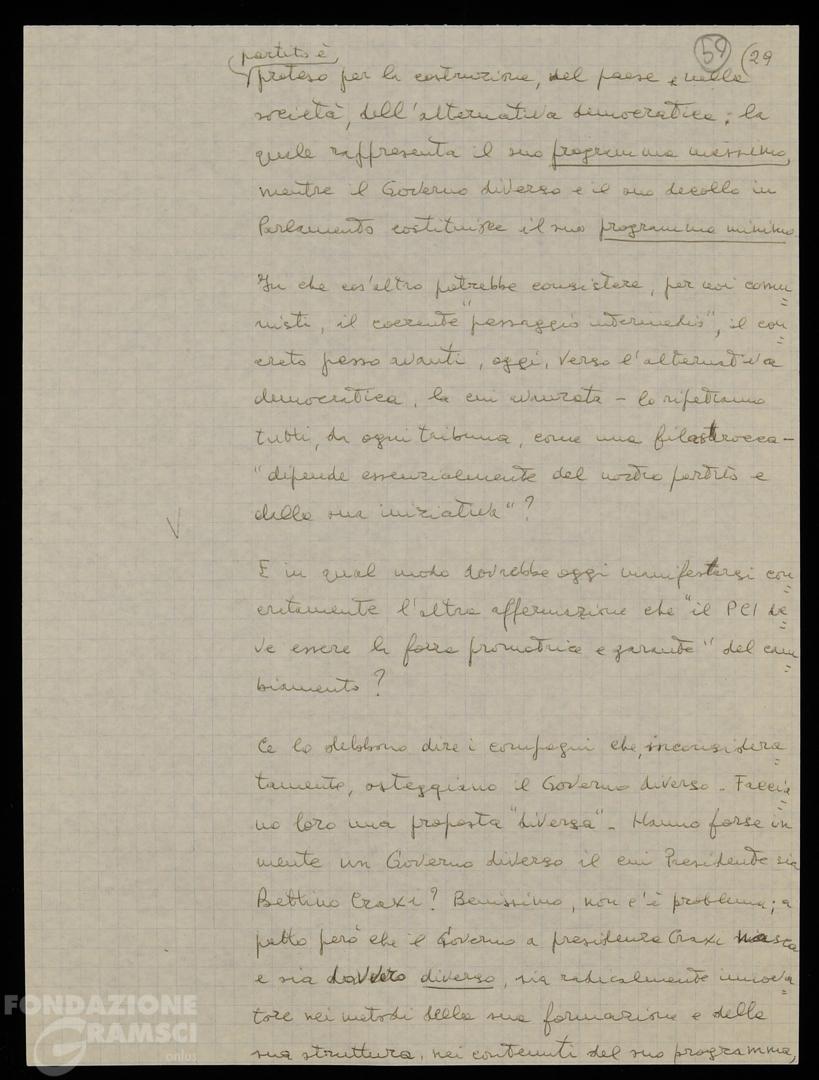 59 (29
partito è
proteso per la costruzione, del paese e nella
società, dell'alternativa democratica; la
quale rappresenta il suo programma massimo,
mentre il Governo diverso e il suo decollo in
Parlamento costituisce il suo programma minimo.
In che cos'altro potrebbe consistere, per noi comu=
nisti, il coerente "passaggio intermedio", il con=
creto passo avanti, oggi, verso l'alternativa
democratica, la cui avanzata – lo ripetiamo
tutti, da ogni tribuna, come una filastrocca –
"dipende essenzialmente dal nostro partito e
dalla sua iniziativa"?
E in qual modo dovrebbe oggi manifestarsi con=
cretamente l'altra affermazione che "il PCI de=
ve essere la forza promotrice e garante" del cam=
biamento?
Ce lo debbono dire i compagni che, inconsidera=
tamente, osteggiano il Governo diverso. Faccia=
no loro una proposta "diversa". Hanno forse in
mente un Governo diverso il cui Presidente sia
Bettino Craxi? Benissimo, non c'è problema; a
patto però che il Governo a presidenza Craxi nasca
e sia davvero diverso, sia radicalmente innova=
tore nei metodi della sua formazione e della
sua struttura, nei contenuti del suo programma,
FONDAZIONE
GRAMSCI
onlus